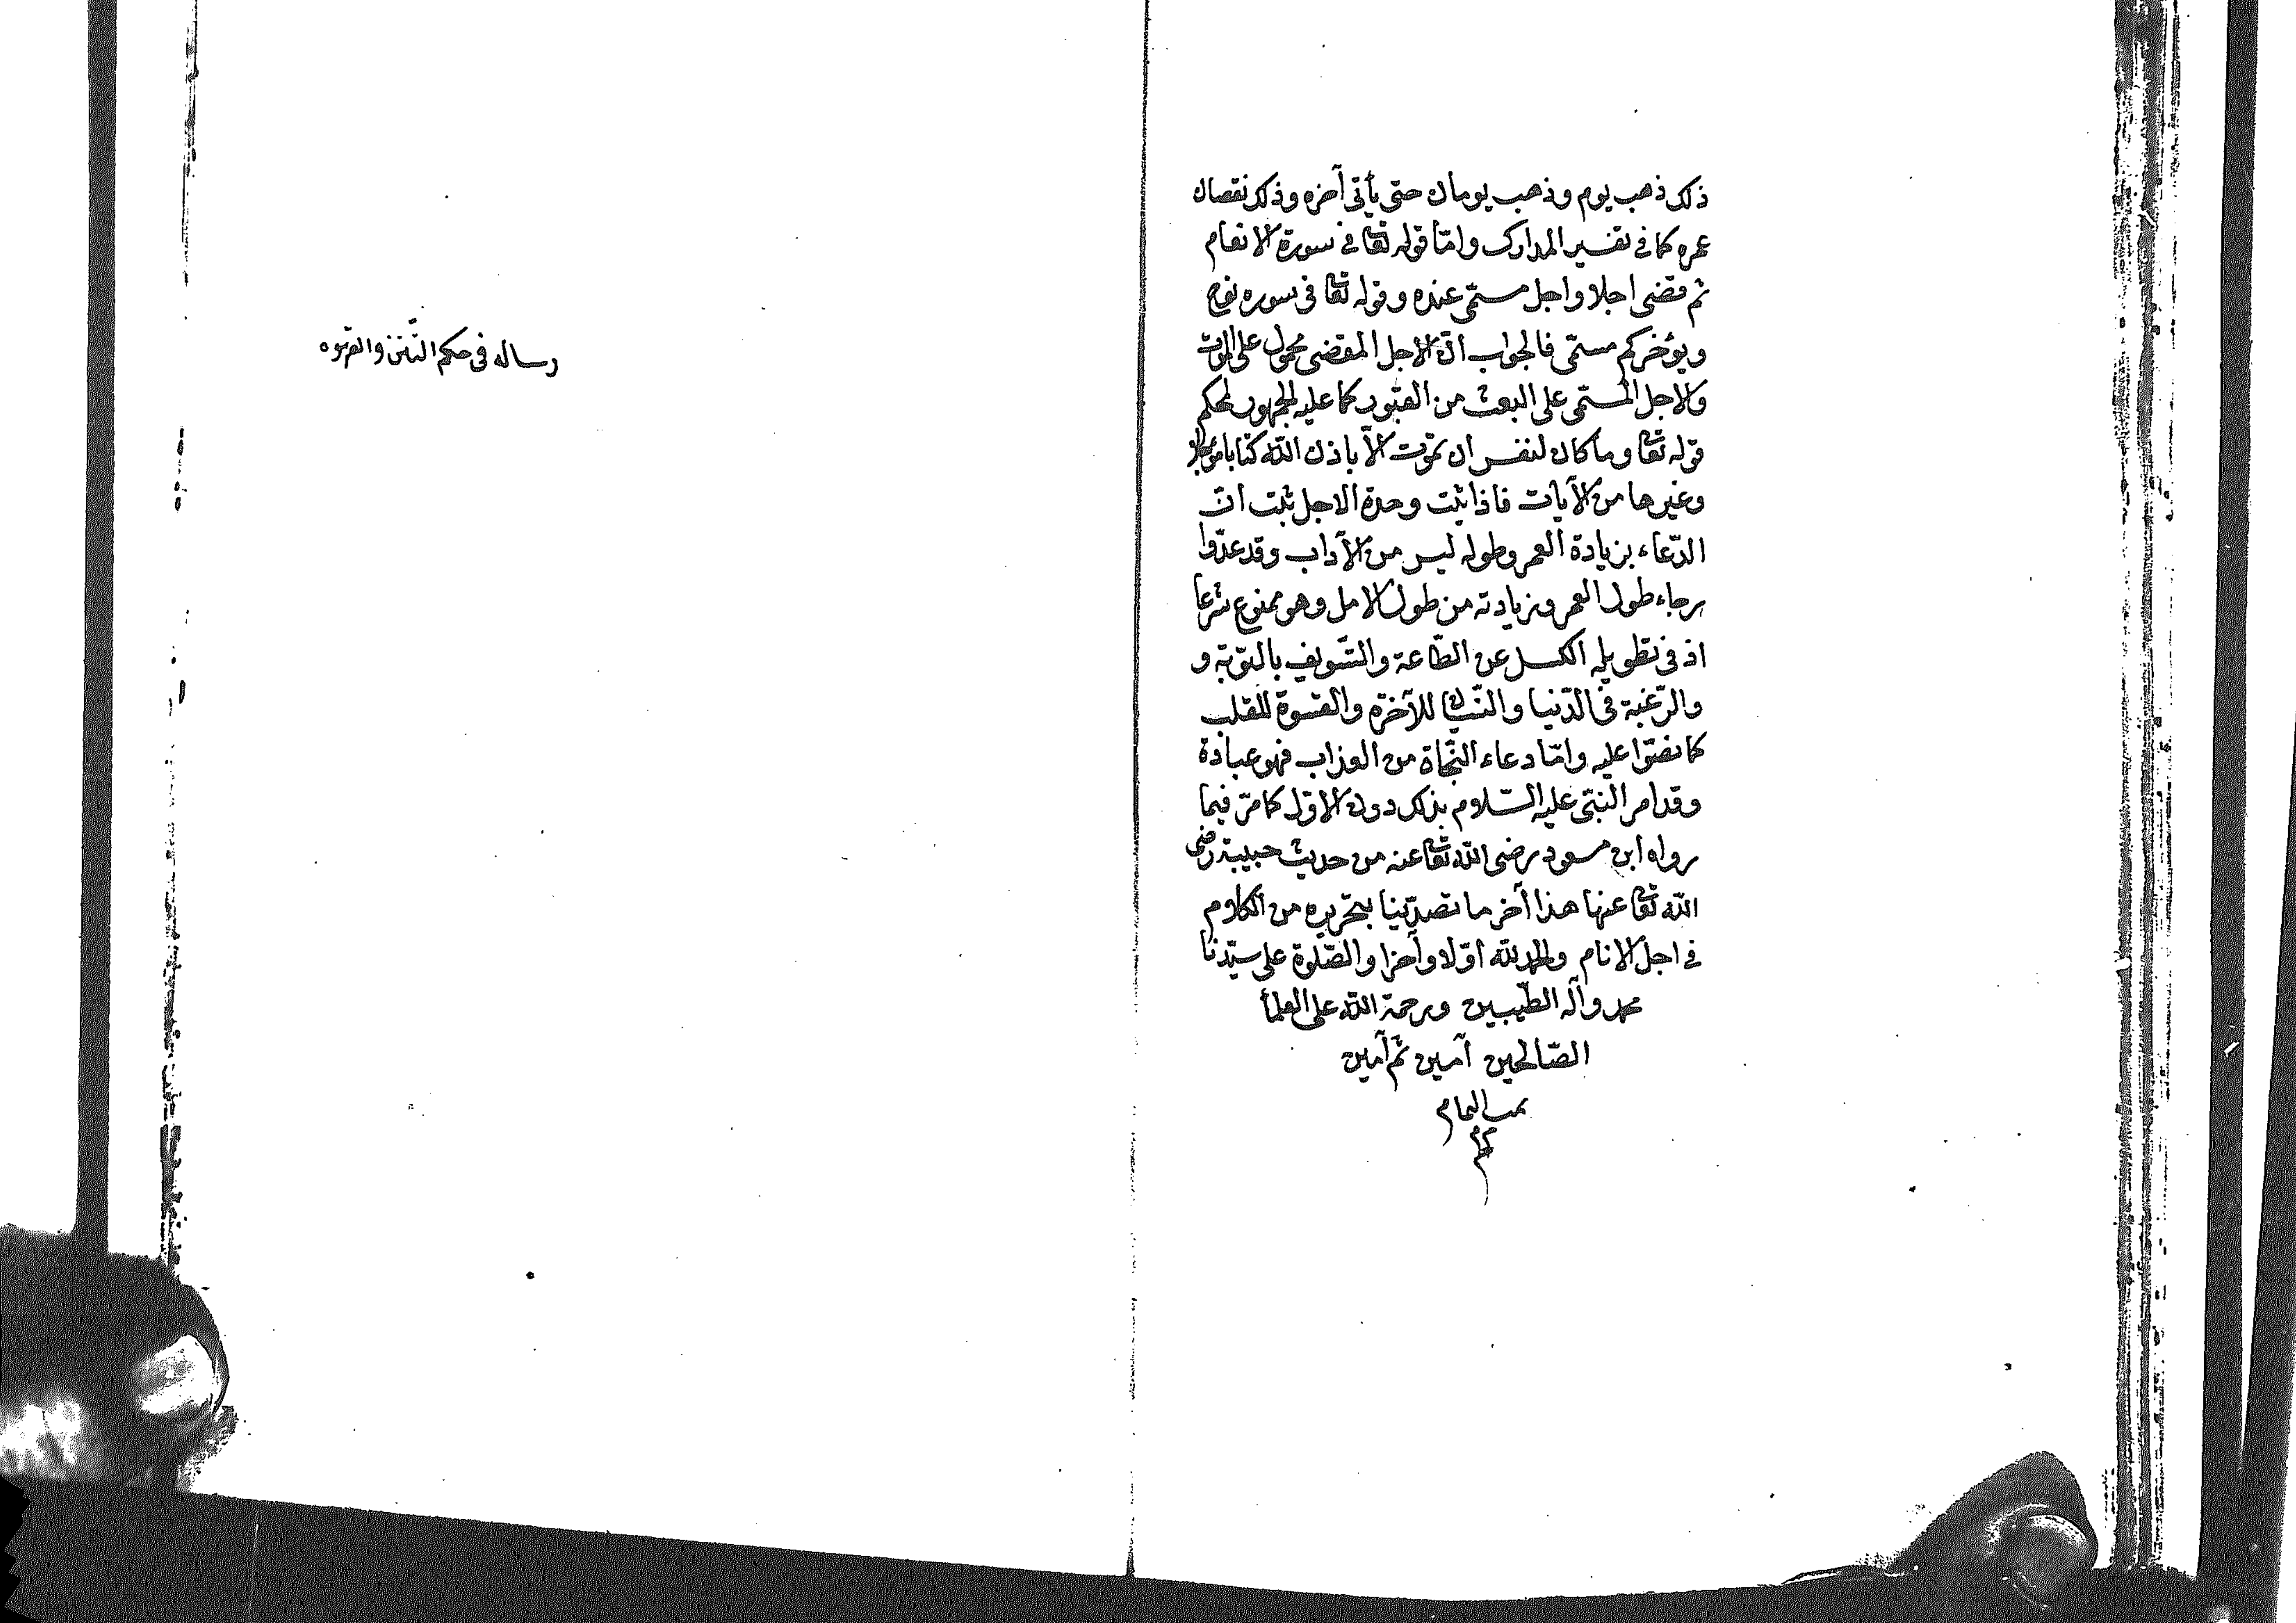 ذلك ذهب يوم وذهب يومان حتى يأتى آخره وذلك نقصان
عمره كما فى تفسير المدارك وامّا قوله تعا فى سورة الانعام
ثم قضى اجلا واجل مسمّى عنده وقوله تعا فى سوره نوح
ويؤخركم مسمّى فالجواب انّ الاجل المقضى محمول على الموت
والاجل المسمّى على البعث من القبور كما عليه الجمهور لحكم
قوله تعا وما كان لنفس ان تموت الّا باذن الله كتابا مؤجلا
وغيرها من الآيات فاذا ثبت وحدة الاجل ثبت انّ
الدّعاء بزيادة العمر وطوله ليس من الآداب وقد عدّوا
رجاء طول العمر وزيادته من طول الامل وهو ممنوع شرعا
اذ فى تطويله الكسل عن الطّاعة والتّسويف بالتوبة و
والرّغبة فى الدّنيا والنّسيان للآخرة والقسوة للقلب
كما نصّوا عليه وامّا دعاء النّجاة من العذاب فهو عبادة
وقد امر النبىّ عليه السّلام بذلك دون الاوّل كما مرّ فيما
رواه ابن مسعود رضى الله تعا عنه من حديث حبيبة رضى
الله تعا عنها هذا آخر ما تصدّينا بتحريره من الكلام
فى اجل الانام والحمد لله اوّلا وآخرا والصّلوة على سيّدنا
محمد وآله الطّيبين ورحمة الله على العلمأ
الصّالحين آمين ثم آمين
تمت التمام
رساله فى حكم التّتن والقهوه